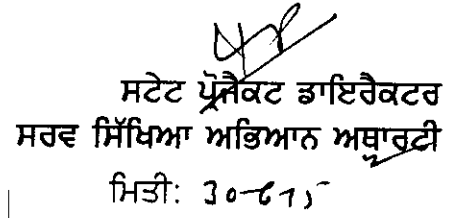 ਸਟੇਟ ਪ੍ਰੋਜੈਕਟ ਡਾਇਰੈਕਟਰ
ਸਰਵ ਸਿੱਖਿਆ ਅਭਿਆਨ ਅਥਾਰਟੀ
ਮਿਤੀ: 30-6-15